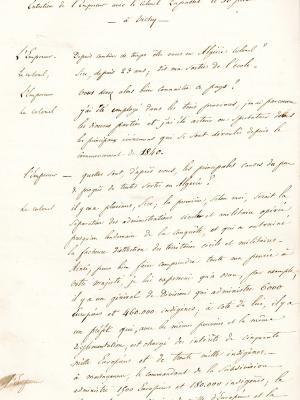 Entretien de l'Empereur avec le Colonel Lapasset le 30 juin
— à Vichy —
L'Empereur. Depuis combien de temps êtes vous en Algérie Colonel ?
Le Colonel, Sire, depuis 23 ans ; dès ma sortie de l'école.
L'Empereur Vous devez alors bien connaître ce pays ?
Le Colonel J'ai été employé dans les trois provinces, j'ai parcouru
les diverses parties et j'ai été acteur ou spectateur dans
les principaux événements qui se sont déroulés depuis le
commencement de 1840.
L'Empereur — quelles sont, d'après vous, les principales causes du peu
de progrès de toutes sortes en Algérie ?
Le Colonel il y en a plusieurs, Sire, la première, selon moi, serait la
séparation des administrations civile et militaire opérée,
presqu'au lendemain de la conquête, et qui a entraîné
la fâcheuse distinction des territoires civils et militaires.
Ainsi, pour bien faire comprendre toute ma pensée à
votre majesté, je lui exposerai qu'à Oran, par exemple,
il y a un général de Division qui administre 6000
Européens et 460.000 indigènes, à côté de lui, il y a
un préfet qui, avec le même pouvoir et la même
réglementation, est chargé des intérêts de cinquante
mille Européens et de trente mille indigènes. —
à mostaganem, le commandant de la Subdivision
administre 1500 Européens et 180.000 indigènes, le